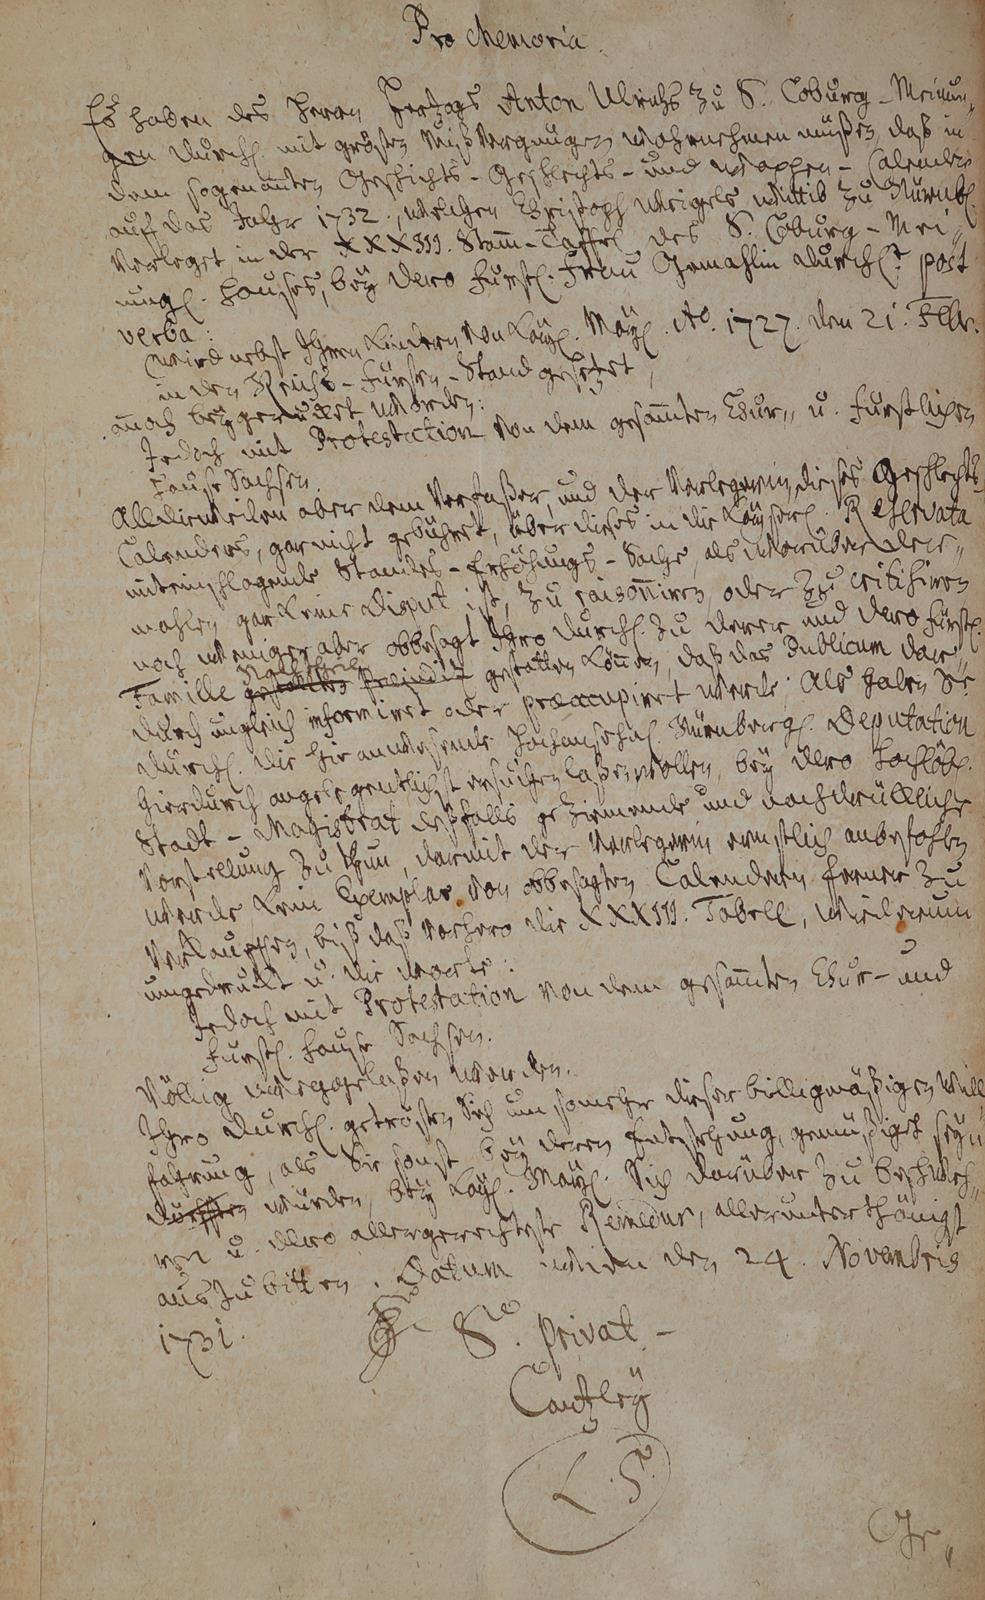 Pro Memoria.
Es haben des Herrn Hertzogs Anton Ulrichs zu S. Coburg-Meinun„
gen Durchl. mit grösten Mißvergnügen wahrnehmen müßen, daß in
dem sogenannten Geschichts- Geschlechts- und Wappen-Calender
auf das Jahr 1732., welchen Christoph Weigels Wittib zu Nürnb.
verleget in der XXXIII. Stam̄-Taffel des S. Coburg-Mei„
ningl. Hauses, bey dero Fürstl. Frau Gemahlin Durchl. post
verba:
Wird nebst Ihren Kindern von Kayl. Mayl. Ao. 1727. den 21. Febr.
in den Reichs-Fürsten-Stand gesetzet,
annoch beygerucket worden:
Jedoch mit Protestation von dem gesam̄ten Chur„ u. Fürstlichen
Hause Sachsen.
Alldieweilen aber dem Verfaßer, und der Verlegerin dieses Geschlechts
Calenders, gar nicht gebühret, über dieses in die Kayserl. Reservata
mit einschlagende Standes-Erhöhungs-Sache, als worüber der„
mahlen gar keine Disput ist, zu raisoniren, oder zu critisiren
noch weniger aber obbesagt Ihro Durchl. zu derer und dero Fürstl.
Famille Præjudiz gestatten können, daß das Publicum da„
durch ungleich informiret oder præoccupiret werde; Als haben Se
Durchl. die hier anwesende Hochansehnl. Nürnbergl. Deputation
hierdurch angelegentlichst ersuchen laßen wollen, bey dero Hochlöbl.
Stadt-Magistrat deßfalls geziemende und nachdrückliche
Vorstellung zu thun, damit der Verlegerin ernstlich anbefohlen
werde kein Exemplar von obbesagten Calendern ferner zu
verkauffen, biß daß vorhero die XXXIII. Tabell, wiederum
umgedruckt u. die worte:
Jedoch mit Protestation von dem gesam̄ten Chur- und
Fürstl. Hause Sachsen.
völlig weggelaßen worden.
Ihro Durchl. getrösten Sich um somehr dieser billigmäßigen Will
fahrung, als Sie sonst bey deren Entstehung, gemüßiget seyn
würden, bey Kayl. Mayl. Sich darüber zu beschweh„
ren u. dero allergerechteste Remedur, allerunterthänigst
auszubitten. Datum Wien den 24. Novembris
1731.
So. Privat-
Cantzley
L. S.